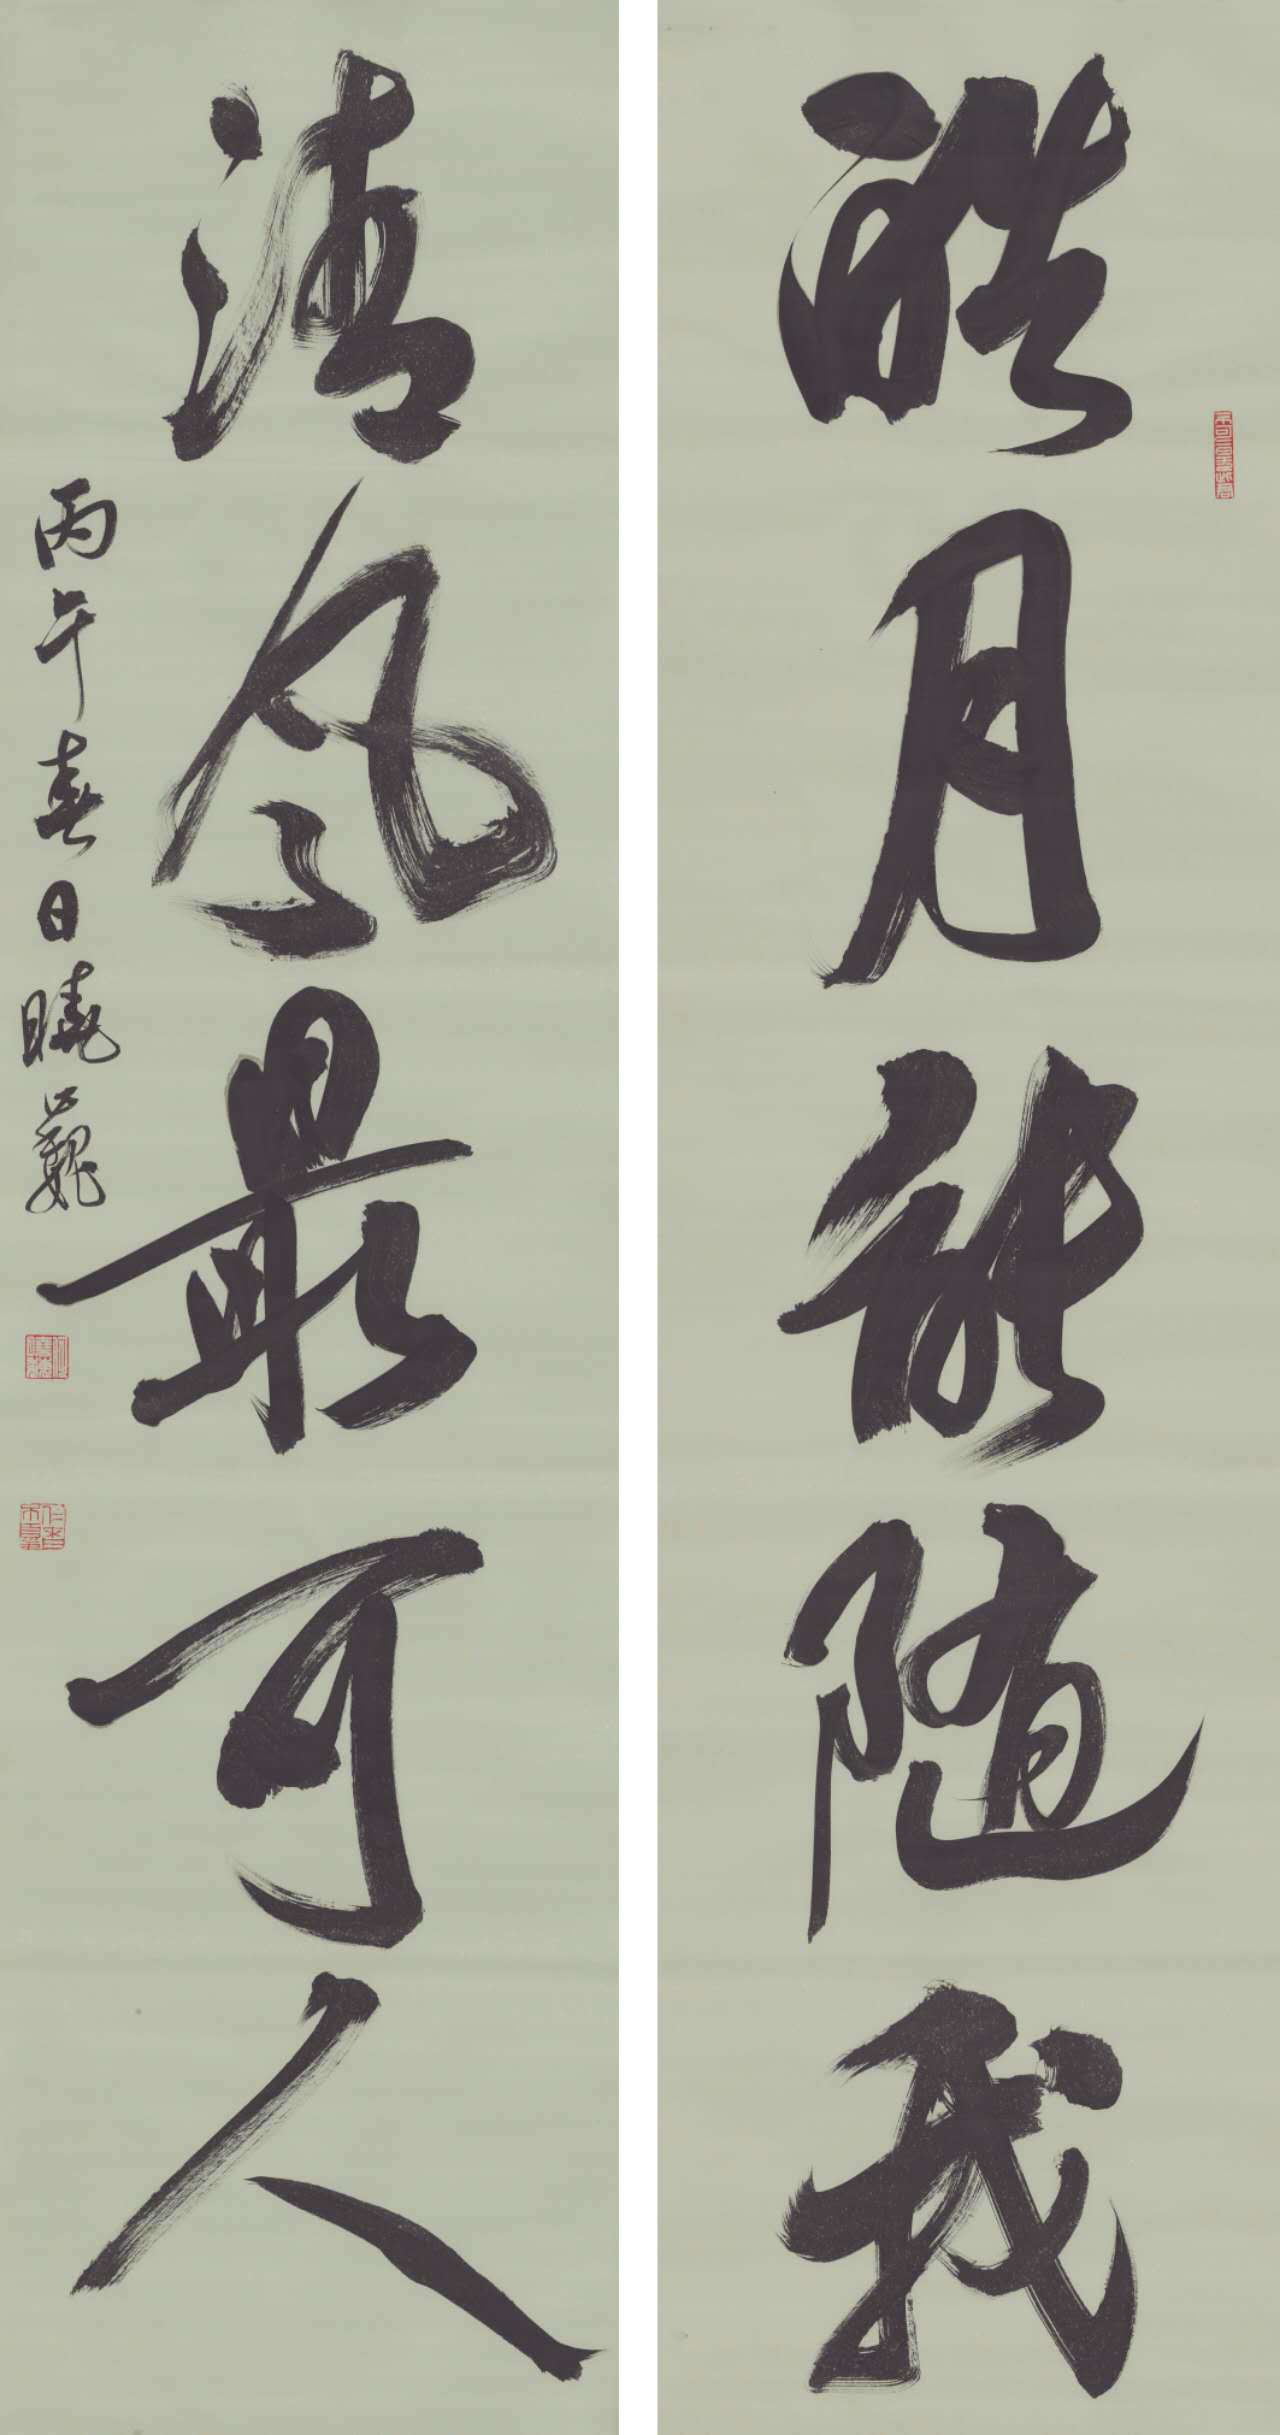 皓月能随我
清风最可人
丙午春日曉巍